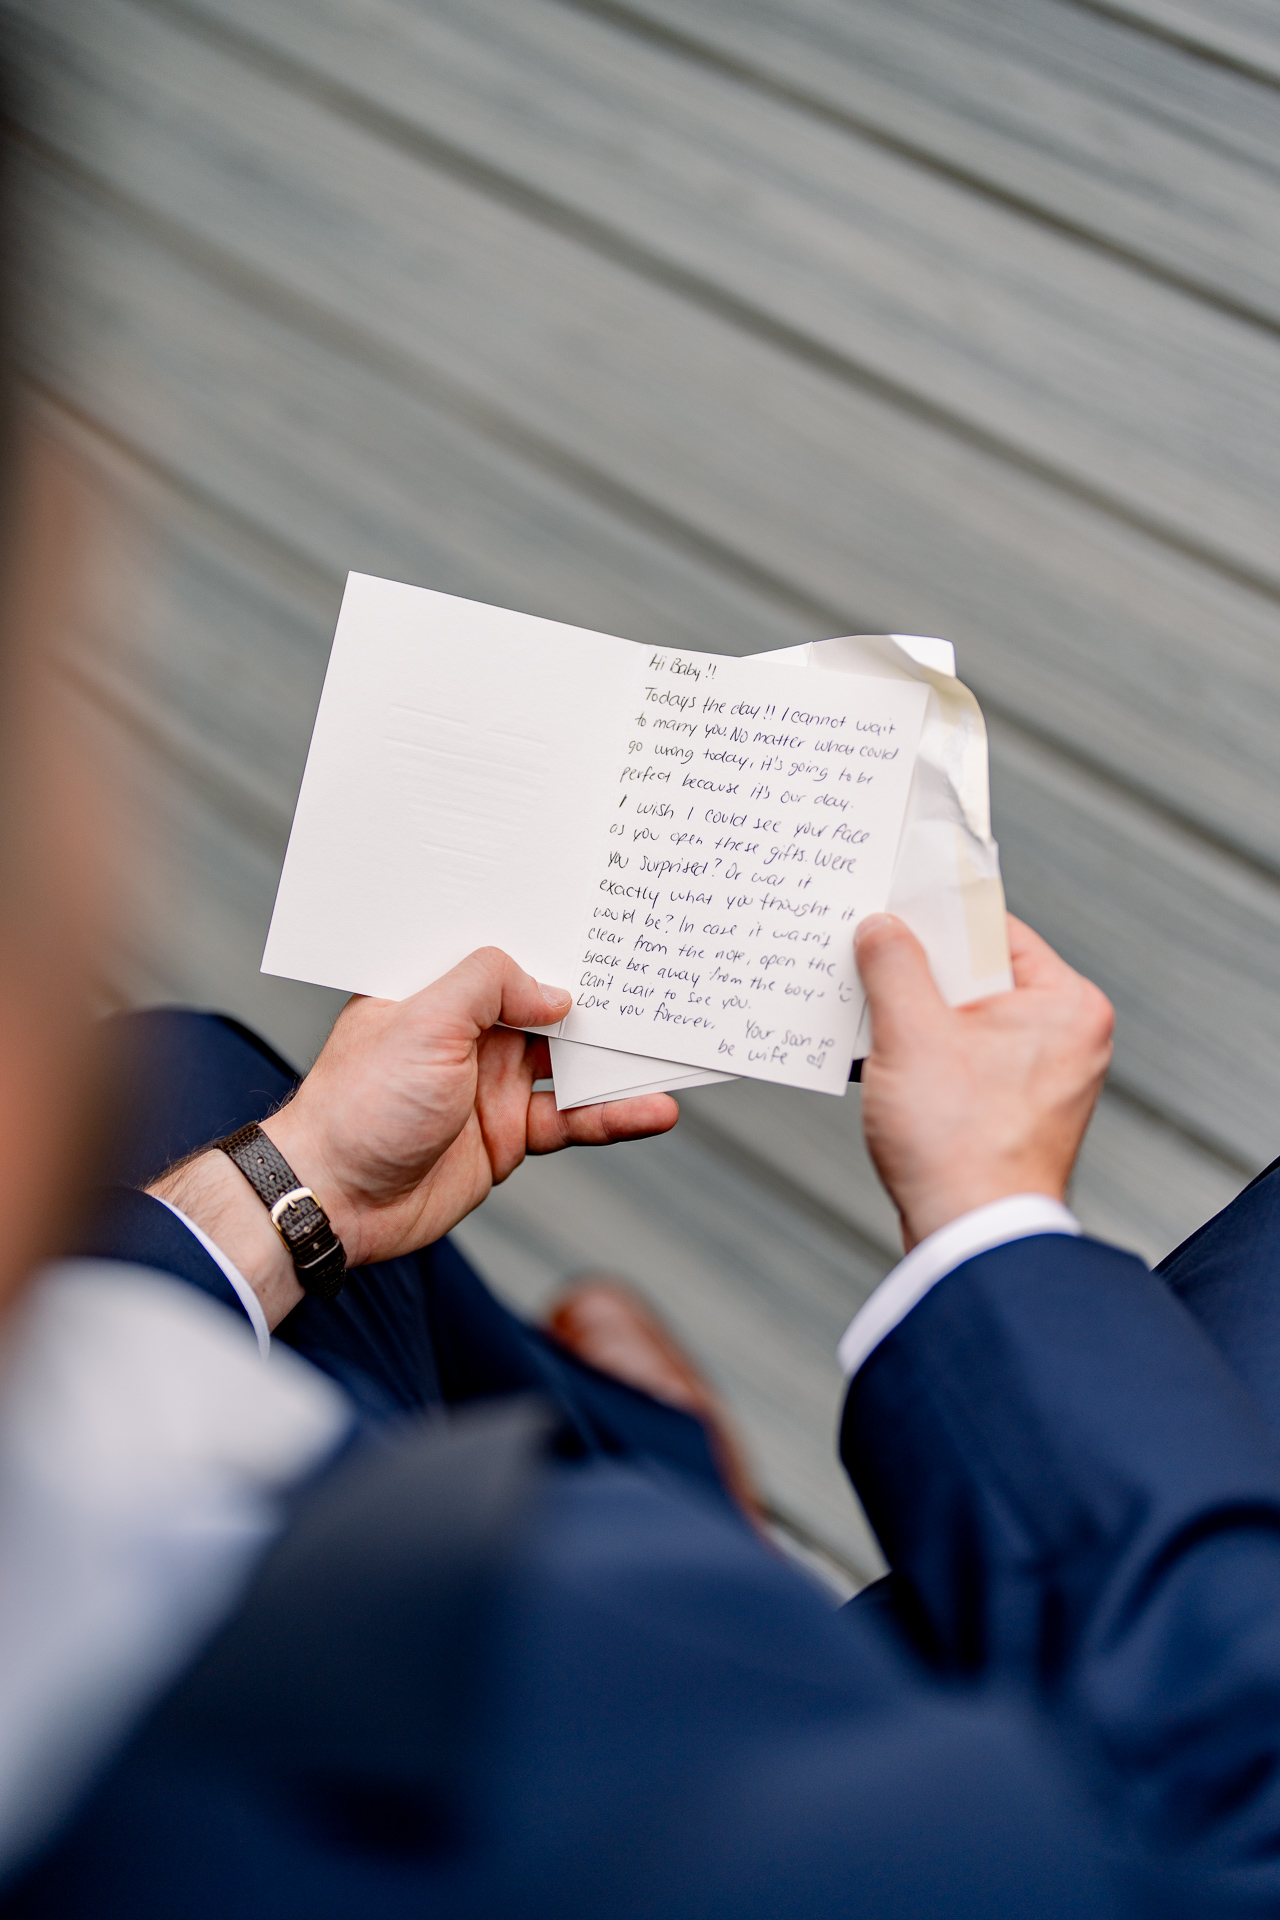 Hi Baby!!
Todays the day!! I cannot wait
to marry you. No matter what could
go wrong today, it's going to be
perfect because it's our day.
I wish I could see your face
as you open these gifts. Were
you surprised? Or was it
exactly what you thought it
would be? In case it wasn't
clear from the note, open the
black box away from the boys
can't wait to see you.
Love you forever,
Your soon to
be wife